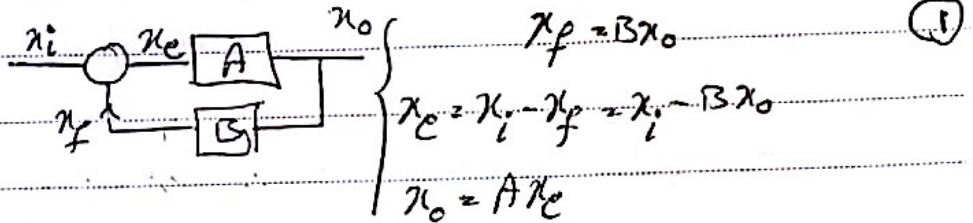 xi xe A xo
xf B
xf = Bxo
①
xe = xi - xf = xi - Bxo
xo = Axe